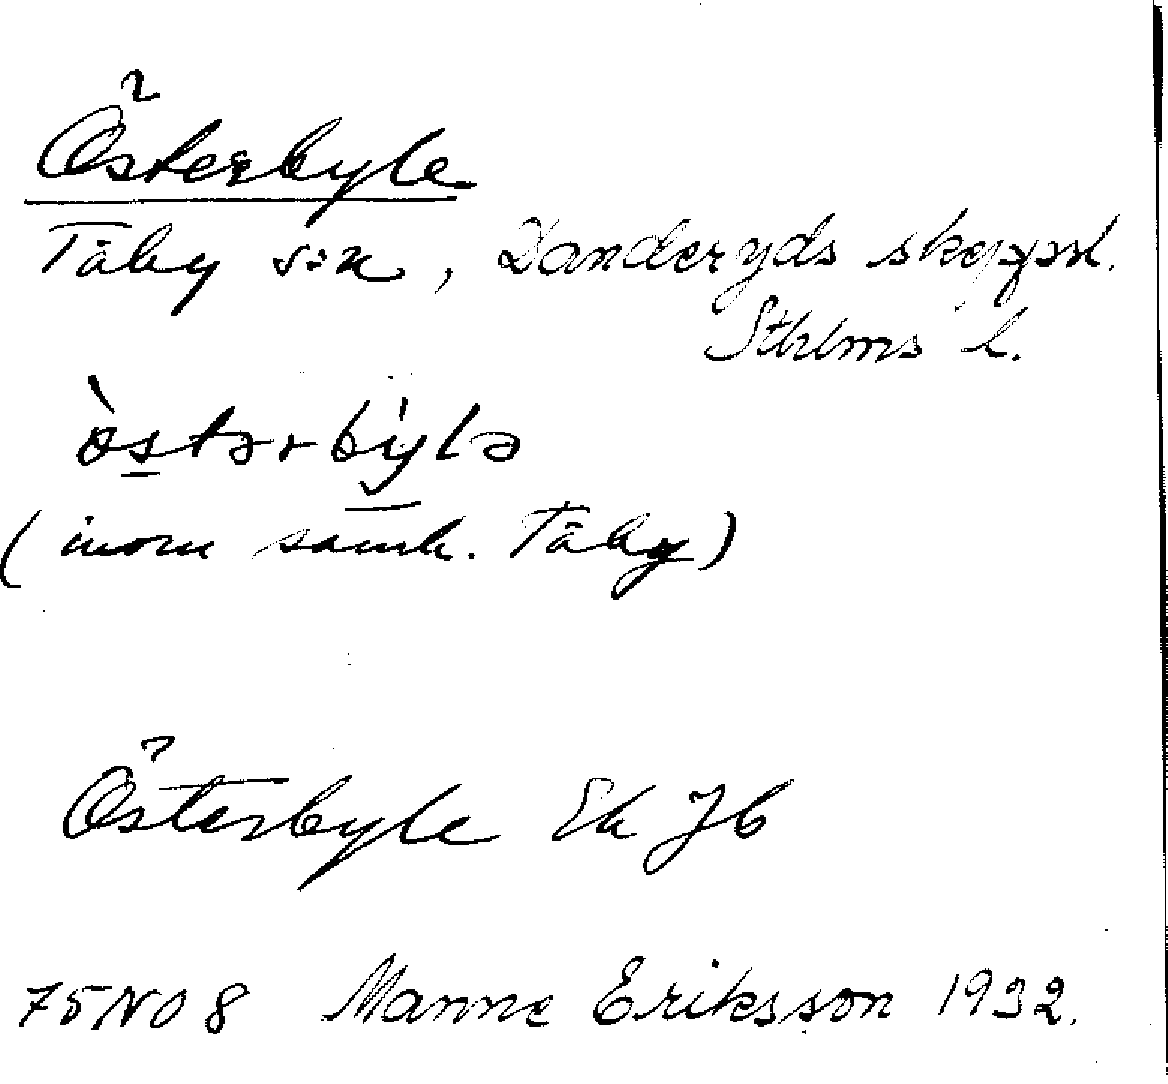 Österbyle
Täby s:n, Danderyds skeppsl.
Sthlms l.
ò̀stərbýlə
(inom samh. Täby)
Österbyle Ek Jb
75NO8 Manne Eriksson 1932.